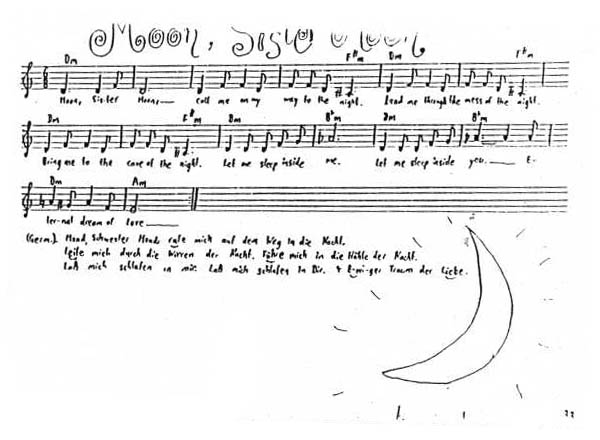 Moon, Sister Moon
Dm F#m Dm F#m
Moon, Sister Moon,__ call me on my way to the night. Lead me through the mess of the night.
Dm F#m Dm Dm
Bring me to the cave of the night. Let me sleep inside me. Let me sleep inside you.__ E-
Dm Am
ter-nal dream of love__
(Germ.) Mond, Schwester Mond, rufe mich auf dem Weg in die Nacht.
Leite mich durch die Wirren der Nacht. Führe mich in die Höhle der Nacht.
Laß mich schlafen in mir. Laß mich schlafen in Dir. E-wi-ger Traum der Liebe.